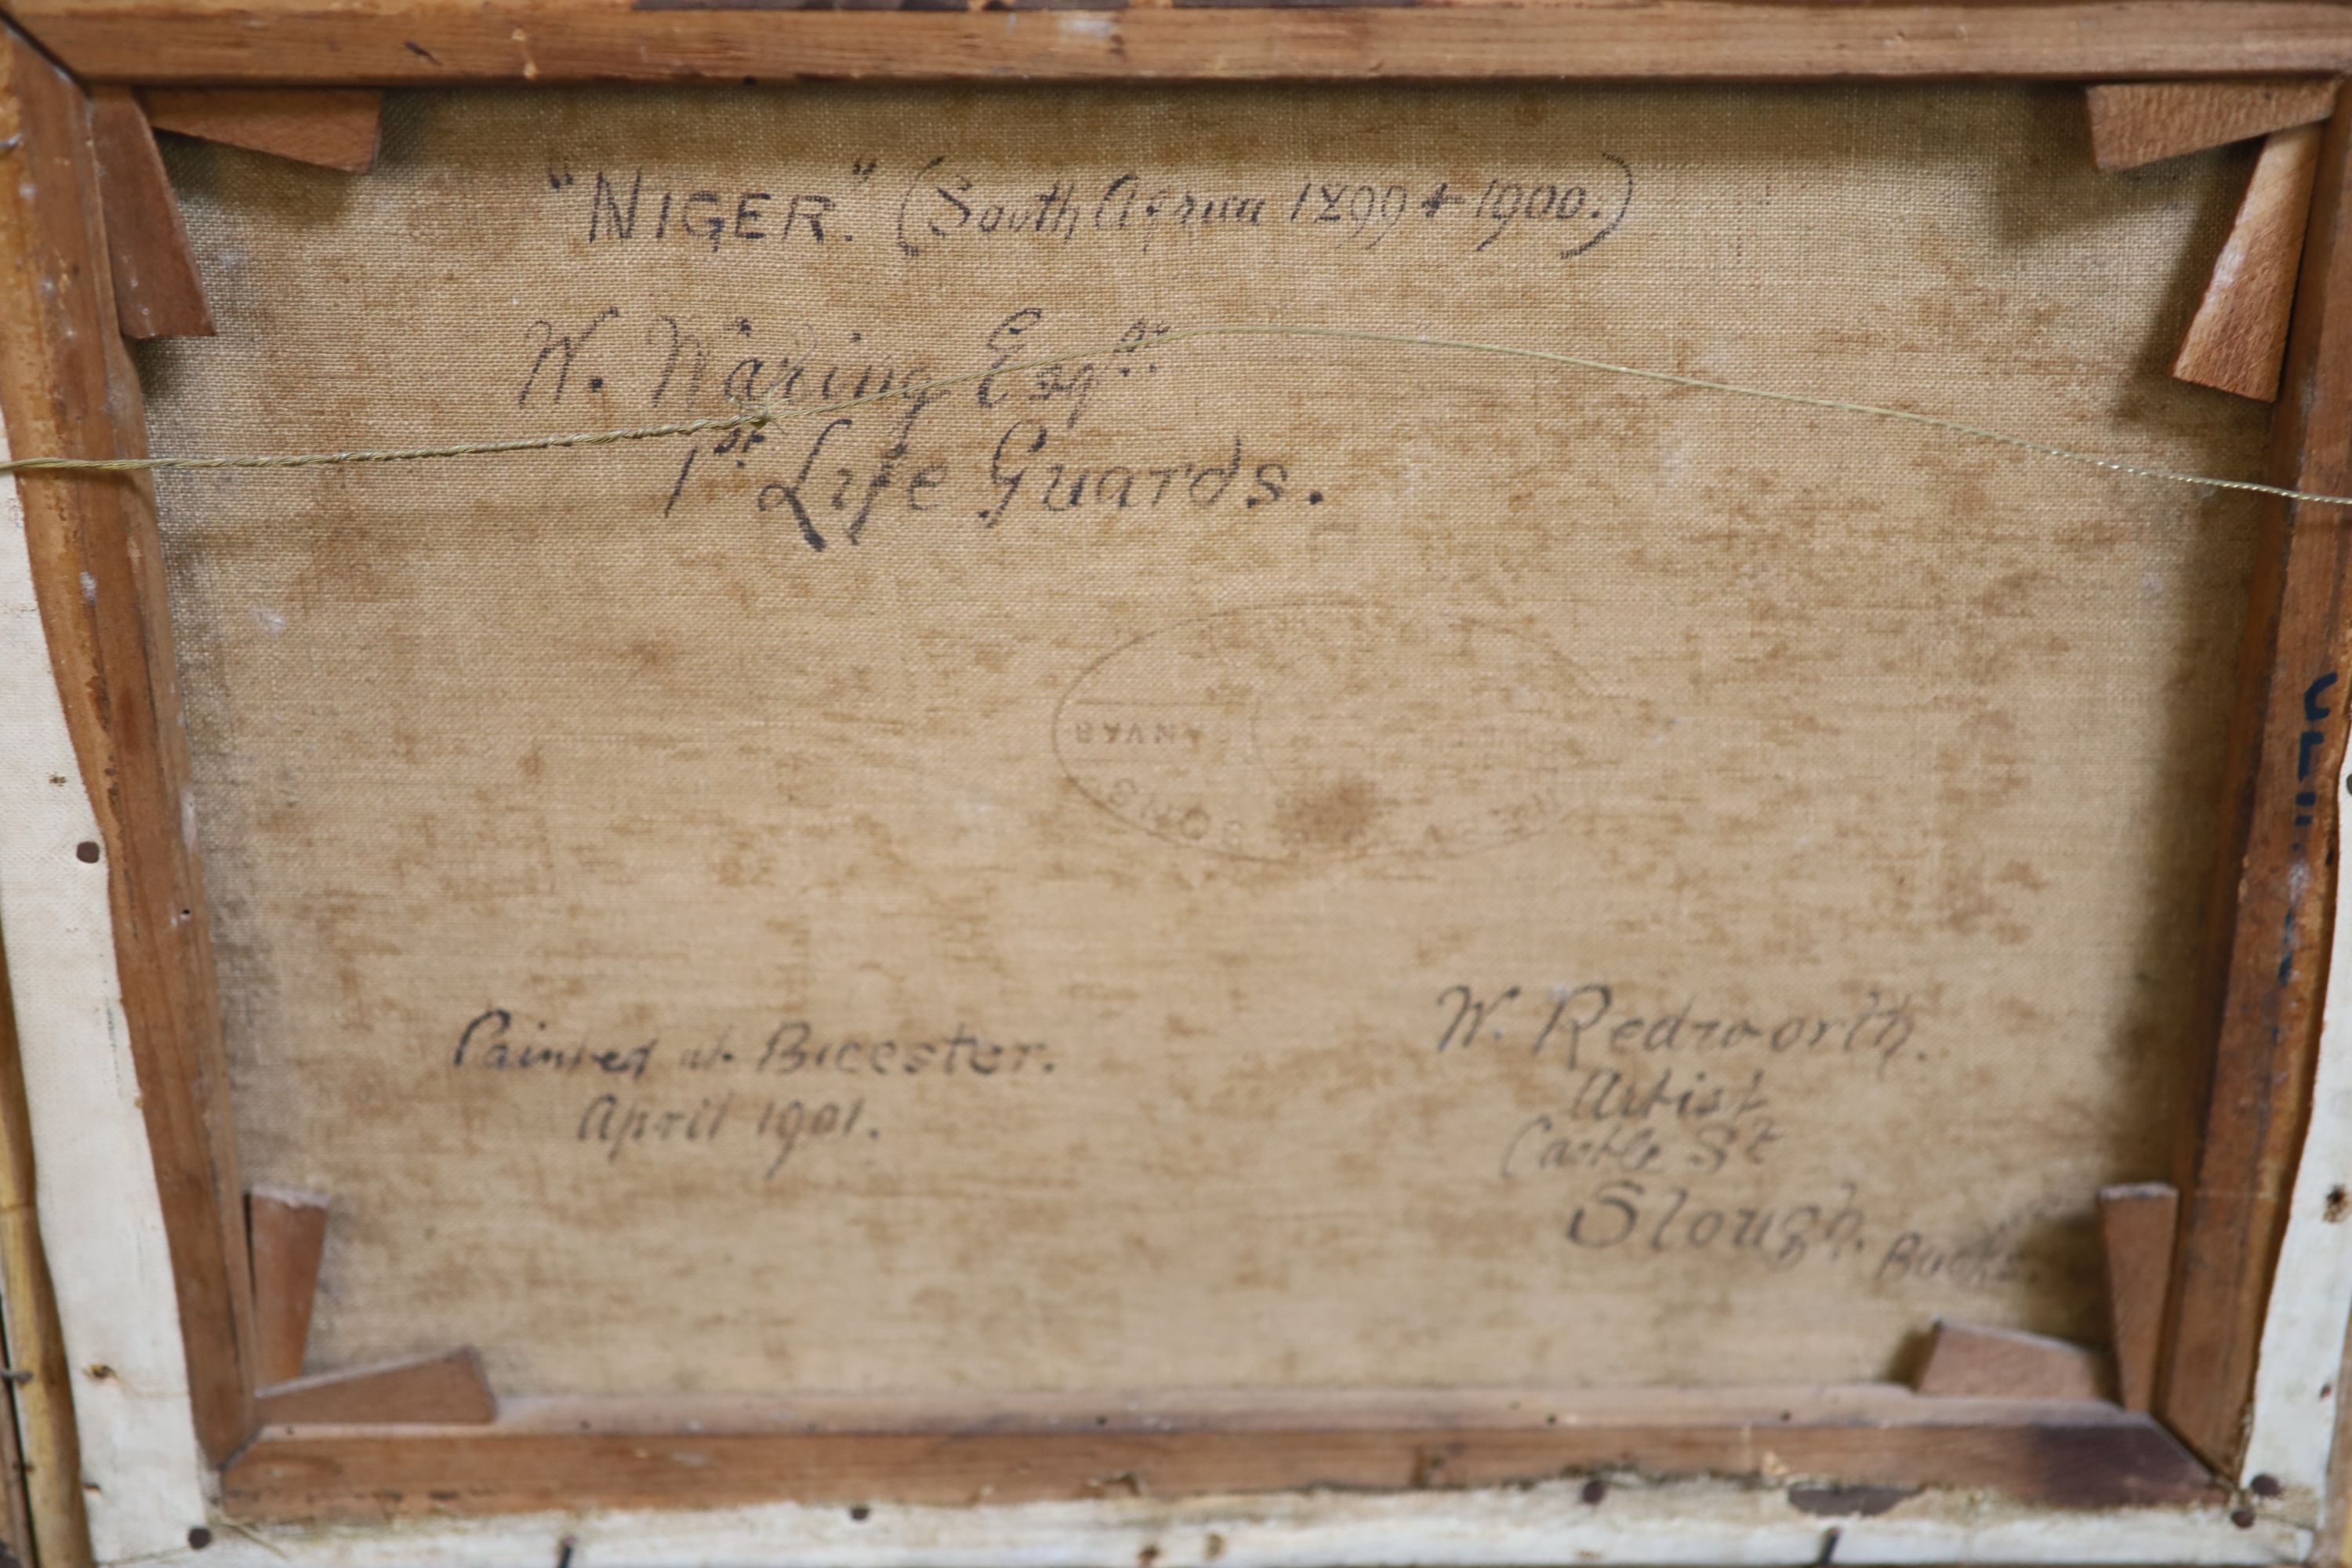 "NIGER." (South African 1899 + 1900.)
W. Waring Esqre.
1st Life Guards.
SONS
Painted at Bicester.
April 1901.
W. Redworth.
Artist
Castle St
Slough. Bucks